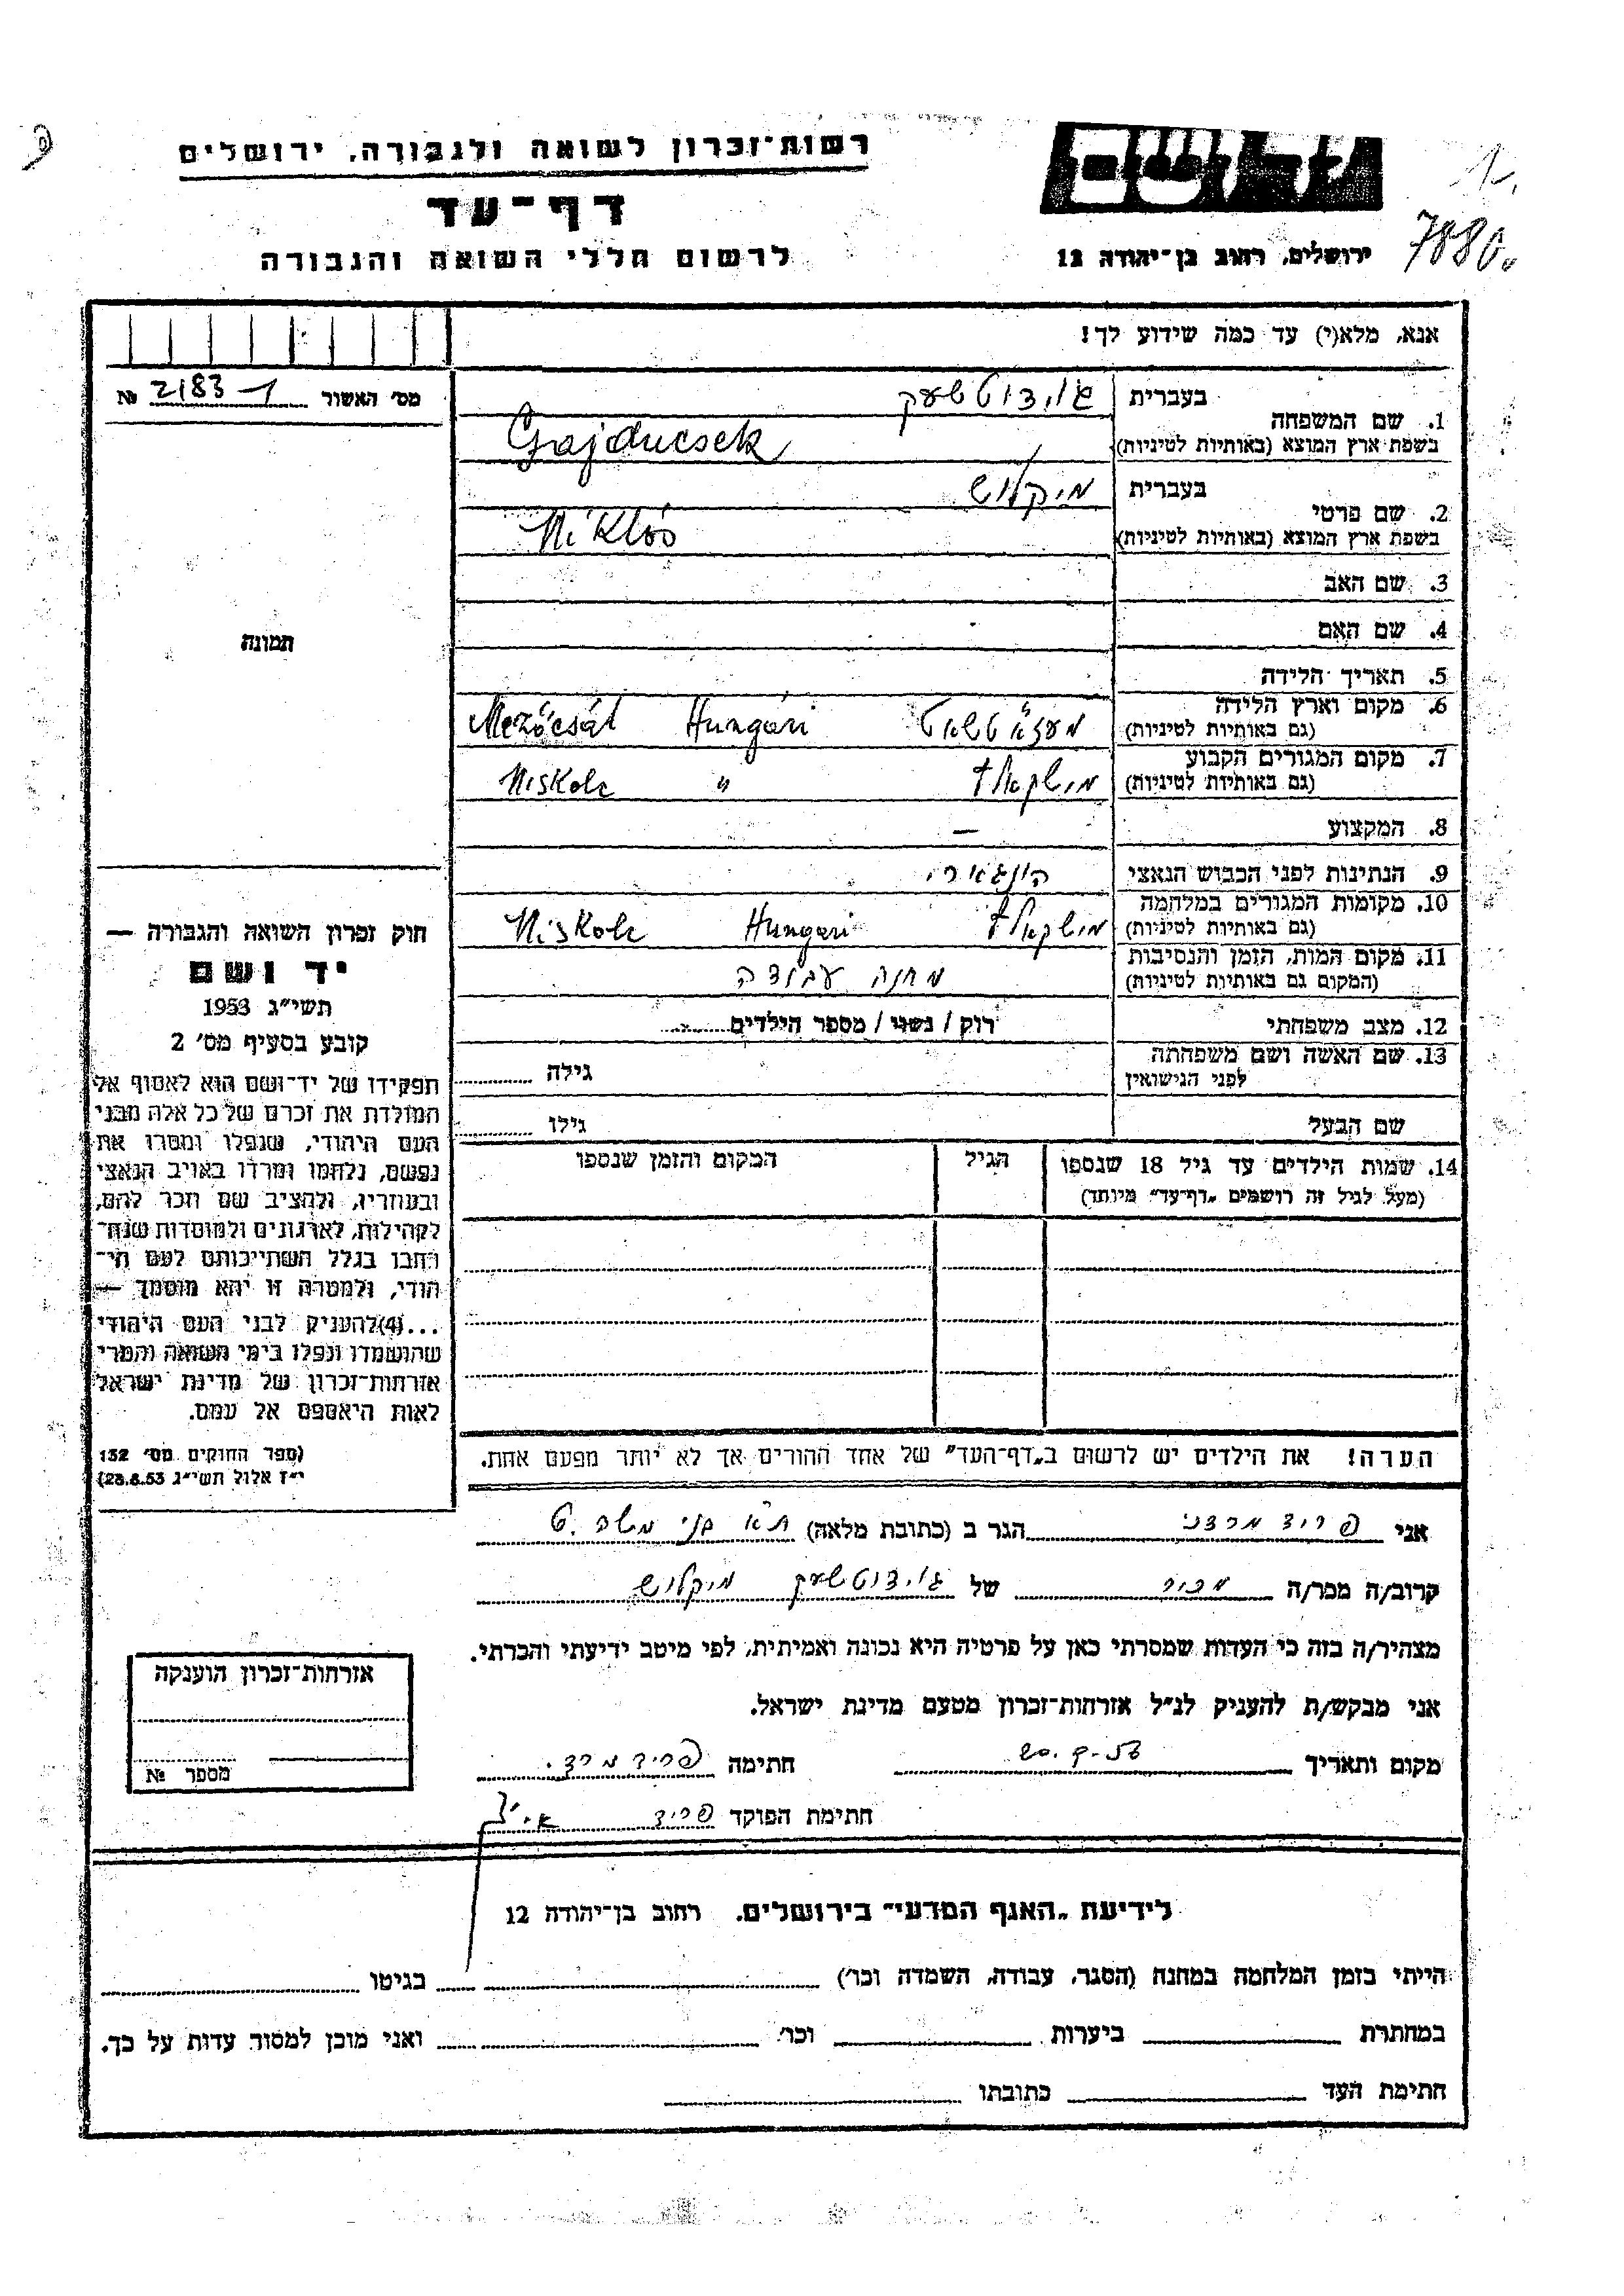 רשות־זכרון לשואה ולגבורה, ירושלים
דף־עד
לרשום חללי השואה והגבורה
ירושלים, רחוב בן־יהודה 12
7880
אנא, מלא(י) עד כמה שידוע לך!
מס׳ האשור 2183-1 №
1. שם המשפחה
בעברית גיידוטשעק
בשפת ארץ המוצא (באותיות לטיניות) Gajducsek
2. שם פרטי
בעברית מיקלוש
בשפת ארץ המוצא (באותיות לטיניות) Miklós
3. שם האב
4. שם האם
5. תאריך הלידה
6. מקום וארץ הלידה
(גם באותיות לטיניות) מעזאטשאט Hungári Mezőcsát
7. מקום המגורים הקבוע
(גם באותיות לטיניות) מישקאלץ " Miskolc
8. המקצוע —
9. הנתינות לפני הכבוש הנאצי הונגארי
10. מקומות המגורים במלחמה
(גם באותיות לטיניות) מישקאלץ Hungari Miskolc
11. מקום המות, הזמן והנסיבות
(המקום גם באותיות לטיניות) מחנה עבודה
12. מצב משפחתי רוק / נשוי / מספר הילדים
13. שם האשה ושם משפחתה
לפני הנישואין גילה
שם הבעל גילו
14. שמות הילדים עד גיל 18 שנספו הגיל המקום והזמן שנספו
(מעל לגיל זה רושמים „דף־עד” מיוחד)
הערה! את הילדים יש לרשום ב„דף־העד” של אחד ההורים אך לא יותר מפעם אחת.
תמונה
חוק זכרון השואה והגבורה —
יד ושם
תשי״ג 1953
קובע בסעיף מס׳ 2
תפקידו של יד־ושם הוא לאסוף אל
המולדת את זכרם של כל אלה מבני
העם היהודי, שנפלו ומסרו את
נפשם, נלחמו ומרדו באויב הנאצי
ובעוזריו, ולהציב שם וזכר להם,
לקהילות, לארגונים ולמוסדות שנח־
רחבו בגלל השתייכותם לעם הי־
הודי, ולמטרה זו יהא מוסמך —
...(4)להעניק לבני העם היהודי
שהושמדו ונפלו בימי השואה והמרי
אזרחות־זכרון של מדינת ישראל
לאות היאספם אל עמם.
(ספר החוקים מס׳ 132
י״ז אלול תשי״ג 28.8.53)
אני פריד מרדכי הגר ב (כתובת מלאה) ת״א בני משה 6
קרוב/ה מכר/ה מכיר של גיידוטשעק מיקלוש
מצהיר/ה בזה כי העדות שמסרתי כאן על פרטיה היא נכונה ואמיתית, לפי מיטב ידיעתי והכרתי.
אני מבקש/ת להעניק לנ״ל אזרחות־זכרון מטעם מדינת ישראל.
מקום ותאריך חתימה פריד מרד.
חתימת הפוקד פריד
אזרחות־זכרון הוענקה
מספר №
לידיעת „האגף המדעי” בירושלים, רחוב בן־יהודה 12
הייתי בזמן המלחמה במחנה (הסגר, עבודה, השמדה וכו׳) בגיטו
במחתרת ביערות וכו׳ ואני מוכן למסור עדות על כך.
חתימת העד כתובתו